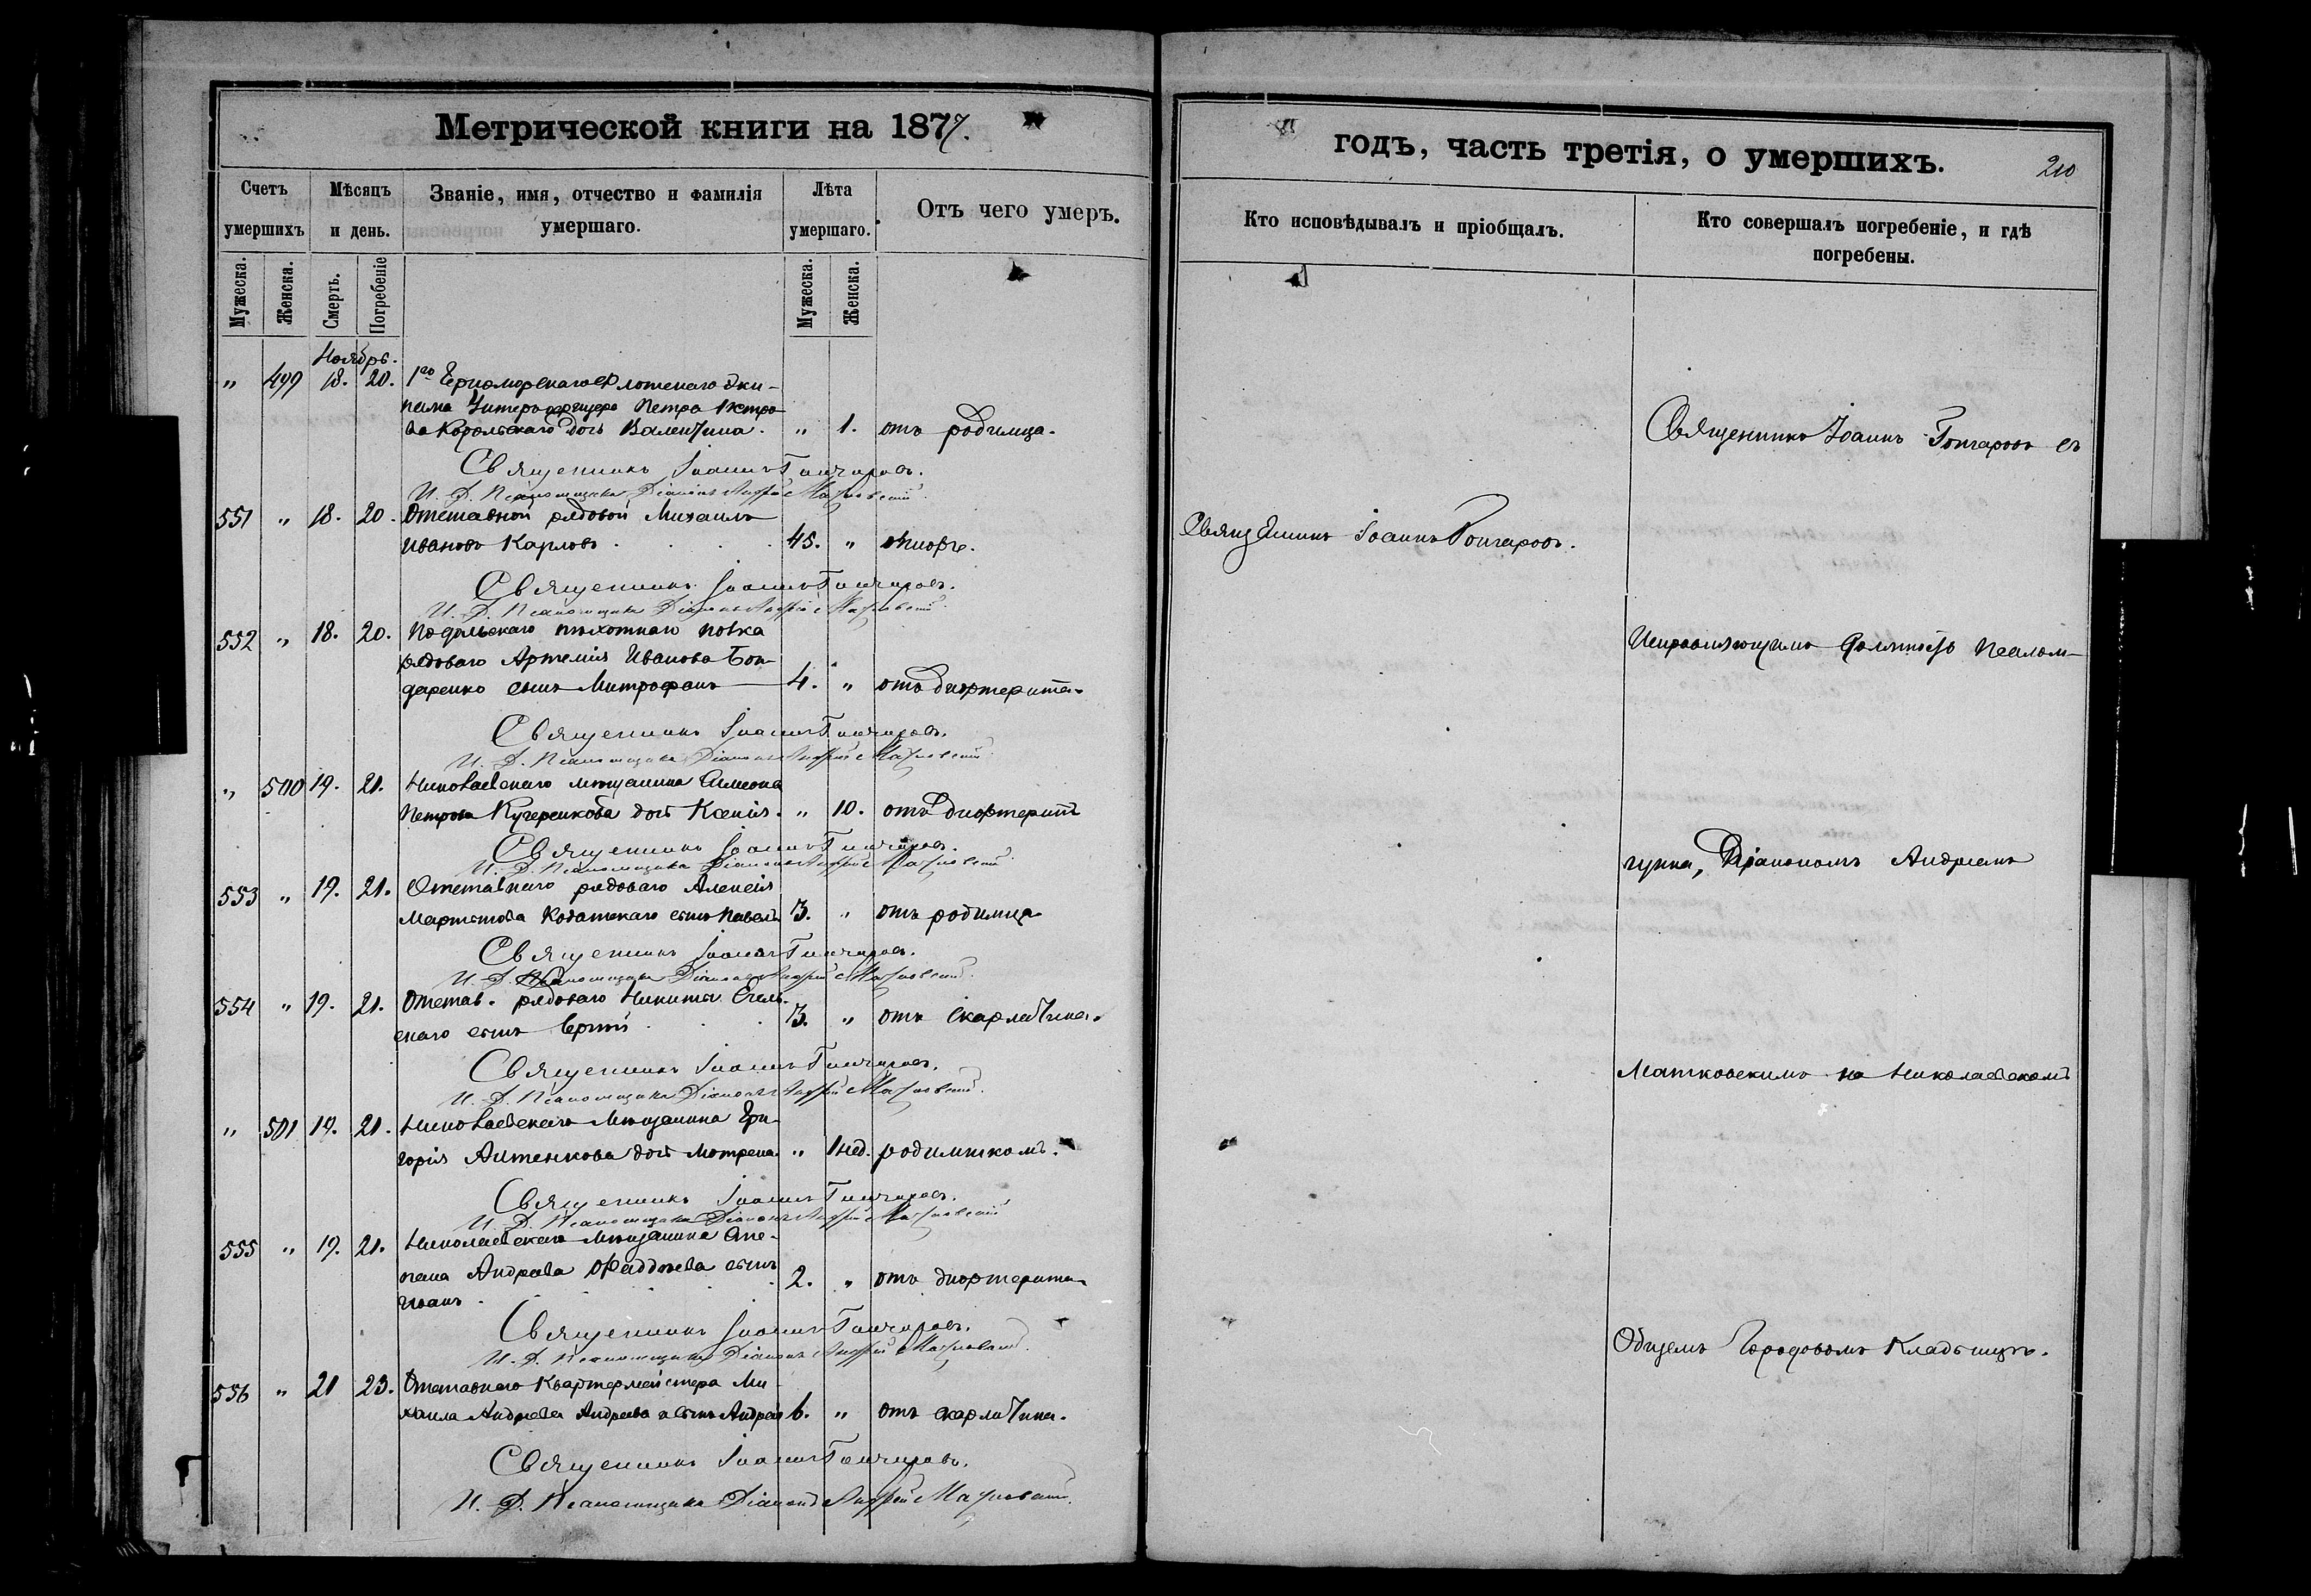 Метрической книги на 1877.
годъ, часть третія, о умершихъ.
210
Счетъ умершихъ
Мѣсяцъ и день.
Званіе, имя, отчество и фамилія умершаго.
Лѣта умершаго.
Отъ чего умеръ.
Кто исповѣдывалъ и пріобщалъ.
Кто совершалъ погребеніе, и гдѣ погребены.
Мужеска. Женска. Смерть. Погребеніе Мужеска. Женска.
Ноябрь.
" 499 18. 20. 1го Черноморскаго Флотскаго Эки-
пажа Унтеръ офицера Петра Петро-
ва Корольскаго дочь Валентина. " 1. отъ родимца.
Священникъ Іоаннъ Гончаровъ.
И. Д. Псаломщика Діаконъ Андрей Матковскій.
551 " 18. 20. Отставной рядовой Михаилъ
Ивановъ Карповъ 45. "
Священникъ Іоаннъ Гончаровъ.
И. Д. Псаломщика Діаконъ Андрей Матковскій.
552 " 18. 20. Подольскаго пѣхотнаго полка
рядоваго Артемія Иванова Бон-
даренко сынъ Митрофанъ 4. " отъ дифтерита.
Священникъ Іоаннъ Гончаровъ.
И. Д. Псаломщика Діаконъ Андрей Матковскій.
" 500 19. 21. Николаевскаго мѣщанина Симеона
Петрова Кучеренкова дочь Ксенія. " 10. отъ дифтерита
Священникъ Іоаннъ Гончаровъ.
И. Д. Псаломщика Діаконъ Андрей Матковскій.
553 " 19. 21. Отставнаго рядоваго Алексія
Мартынова сынъ Павелъ 3. " отъ родимца
Священникъ Іоаннъ Гончаровъ.
И. Д. Псаломщика Діаконъ Андрей Матковскій.
554 " 19. 21. Отстав. рядоваго Никиты
скаго сынъ 3. " отъ скарлатина.
Священникъ Іоаннъ Гончаровъ.
И. Д. Псаломщика Діаконъ Андрей Матковскій.
" 501 19. 21. Николаевскаго Мѣщанина Гри-
горія дочь Мотрена. " 1 нед. родимчикомъ.
Священникъ Іоаннъ Гончаровъ.
И. Д. Псаломщика Діаконъ Андрей Матковскій
555 " 19. 21. Николаевскаго Мѣщанина Сте-
пана Андреева Фаддѣева сынъ
Иванъ. 2. " отъ дифтерита
Священникъ Іоаннъ Гончаровъ.
И. Д. Псаломщика Діаконъ Андрей Матковскій.
556 " 21 23. Отставнаго Квартермейстера Ми-
хаила Андреева Андреева сынъ Андрей 6. " отъ скарлатина.
Священникъ Іоаннъ Гончаровъ.
И. Д. Псаломщика Діаконъ Андрей Матковскій.
Священникъ Іоаннъ Гончаровъ.
Священникъ Іоаннъ Гончаровъ съ
Исправляющимъ должность Псалом-
щика, Діакономъ Андреемъ
Матковскимъ на Николаевскомъ
Общемъ Городовомъ Кладбищѣ.